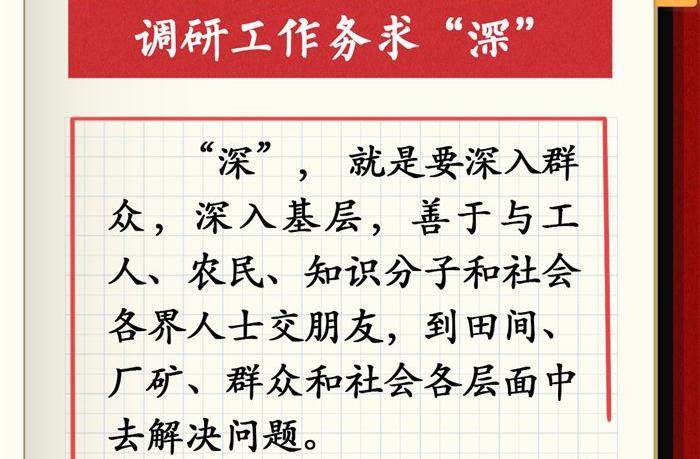 调研工作务求“深”
“深”， 就是要深入群
众，深入基层，善于与工
人、农民、知识分子和社会
各界人士交朋友，到田间、
厂矿、群众和社会各层面中
去解决问题。